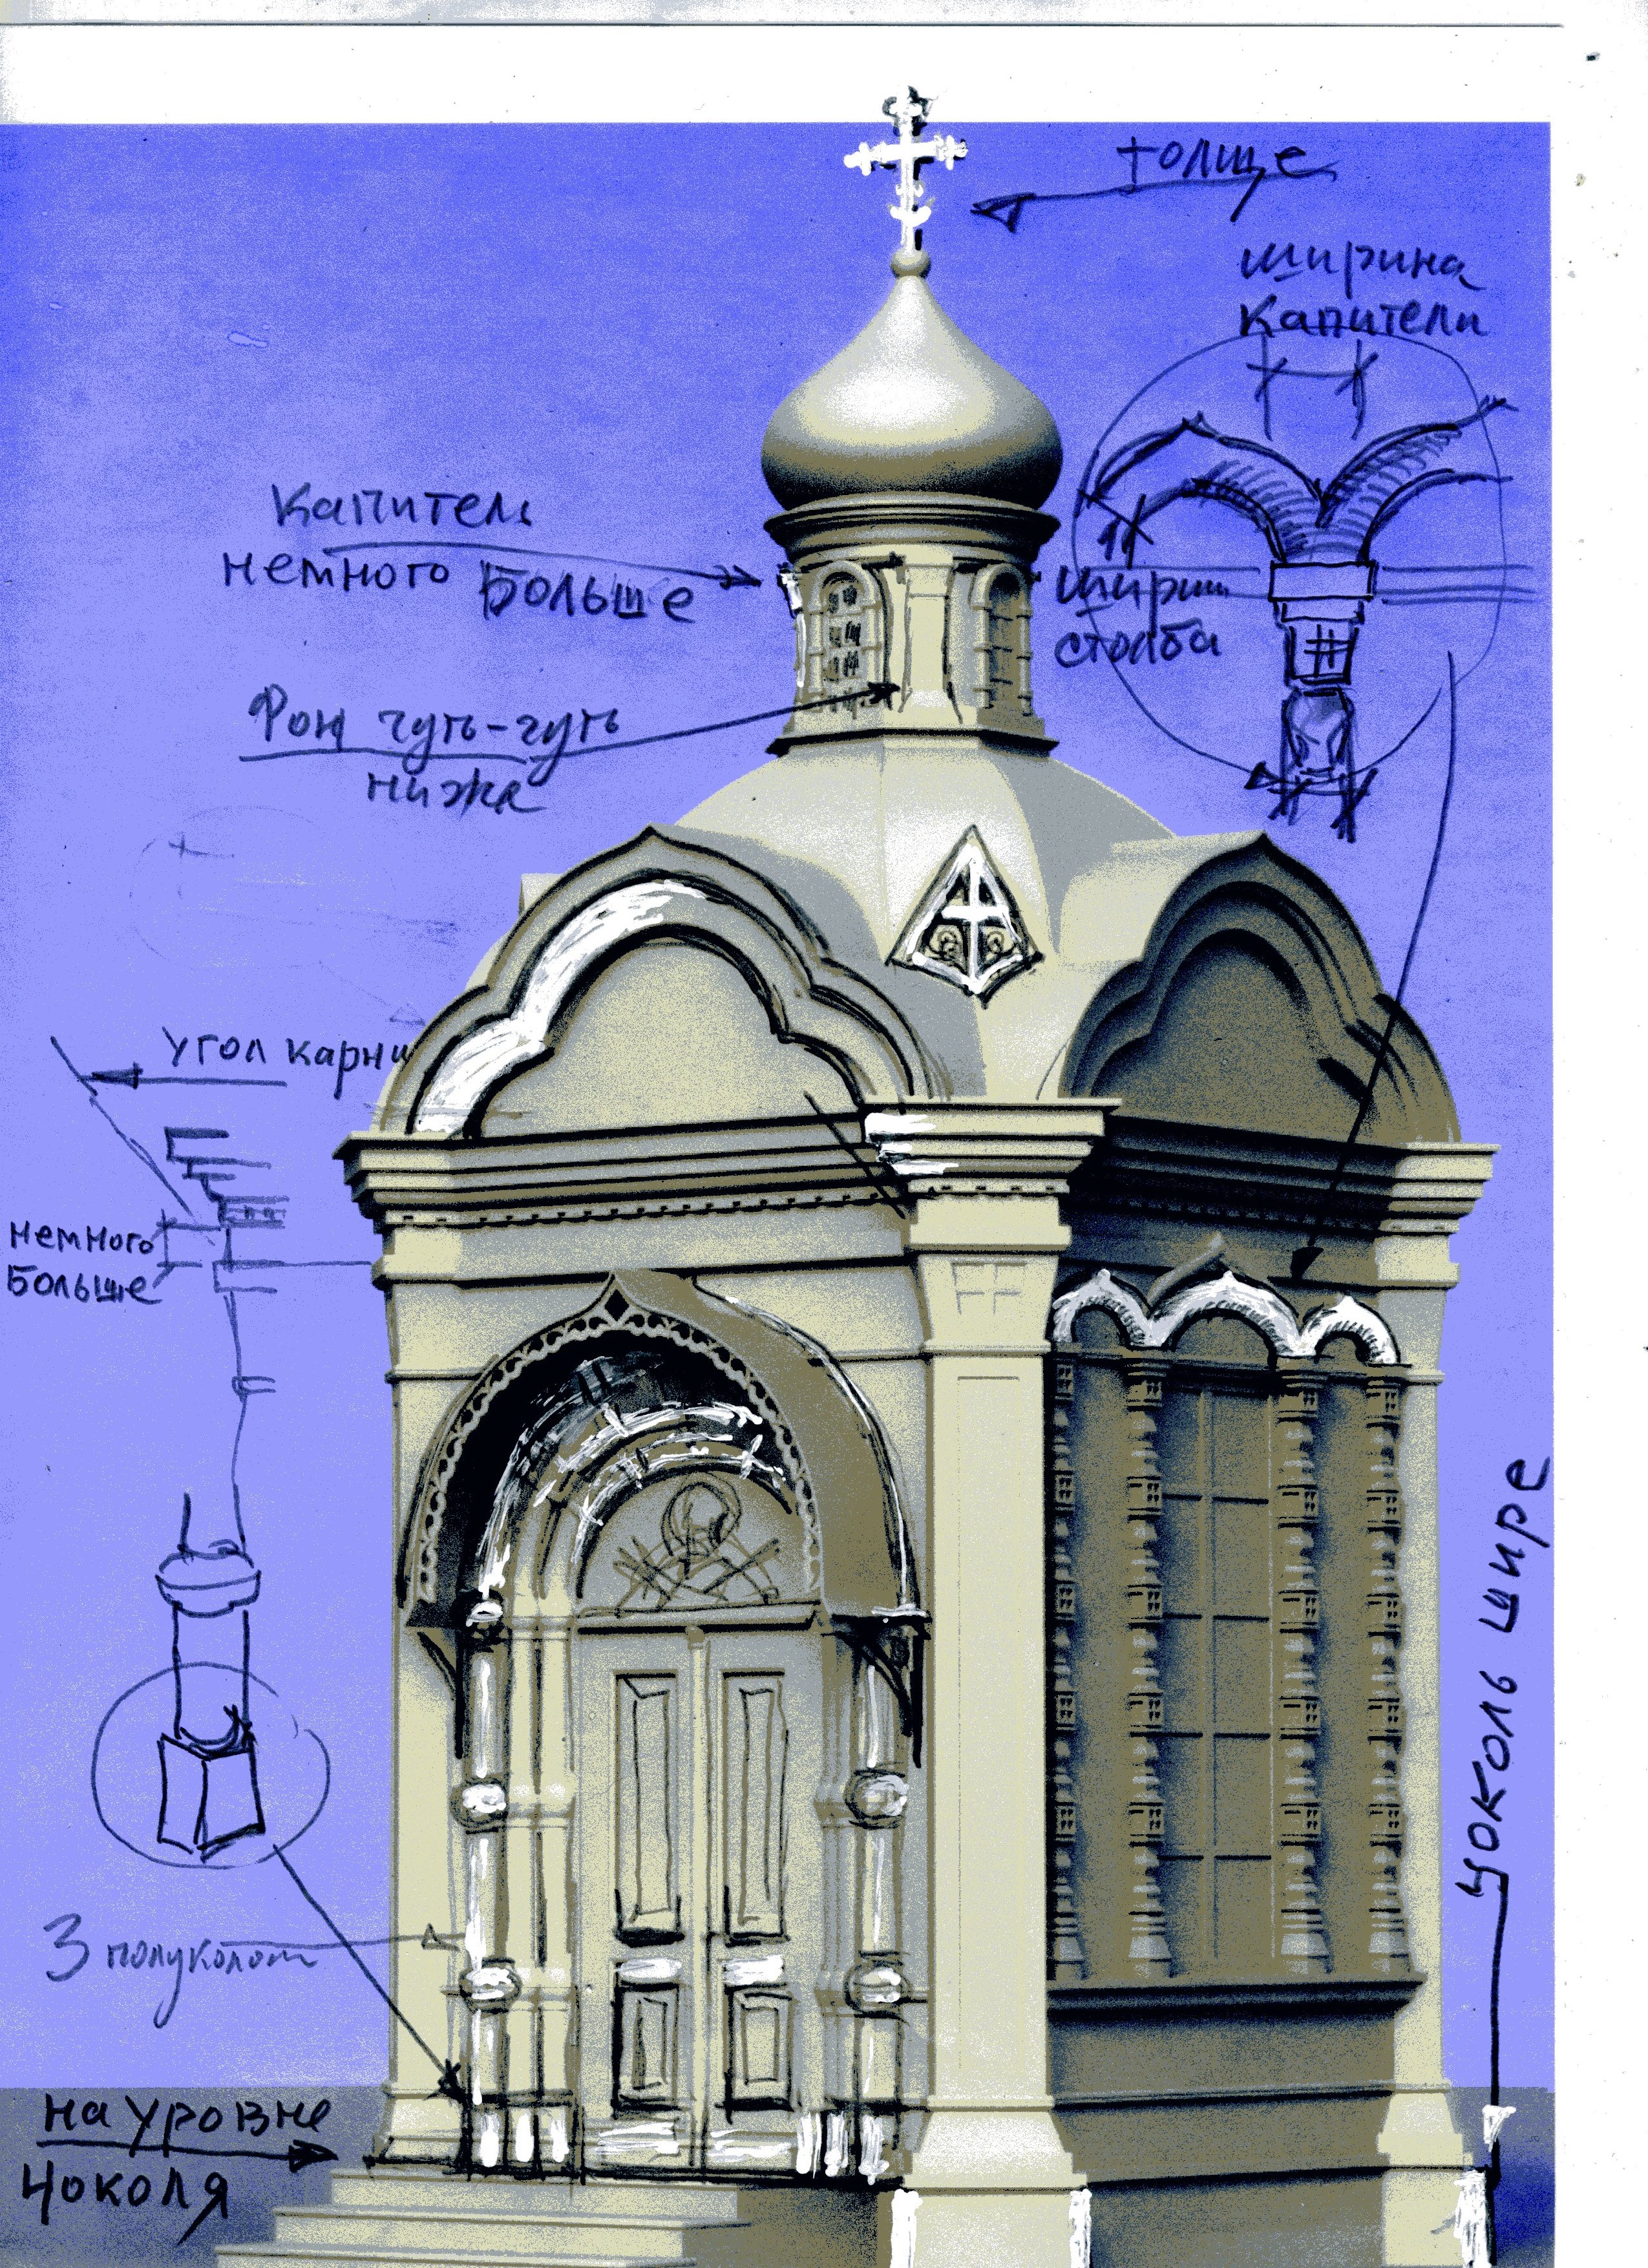 толще
ширина
капители
капитель
немного больше
ширин
столба
Фон чуть-чуть
ниже
угол карни
немного
больше
цоколь шире
3 полуколон
на уровне
цоколя